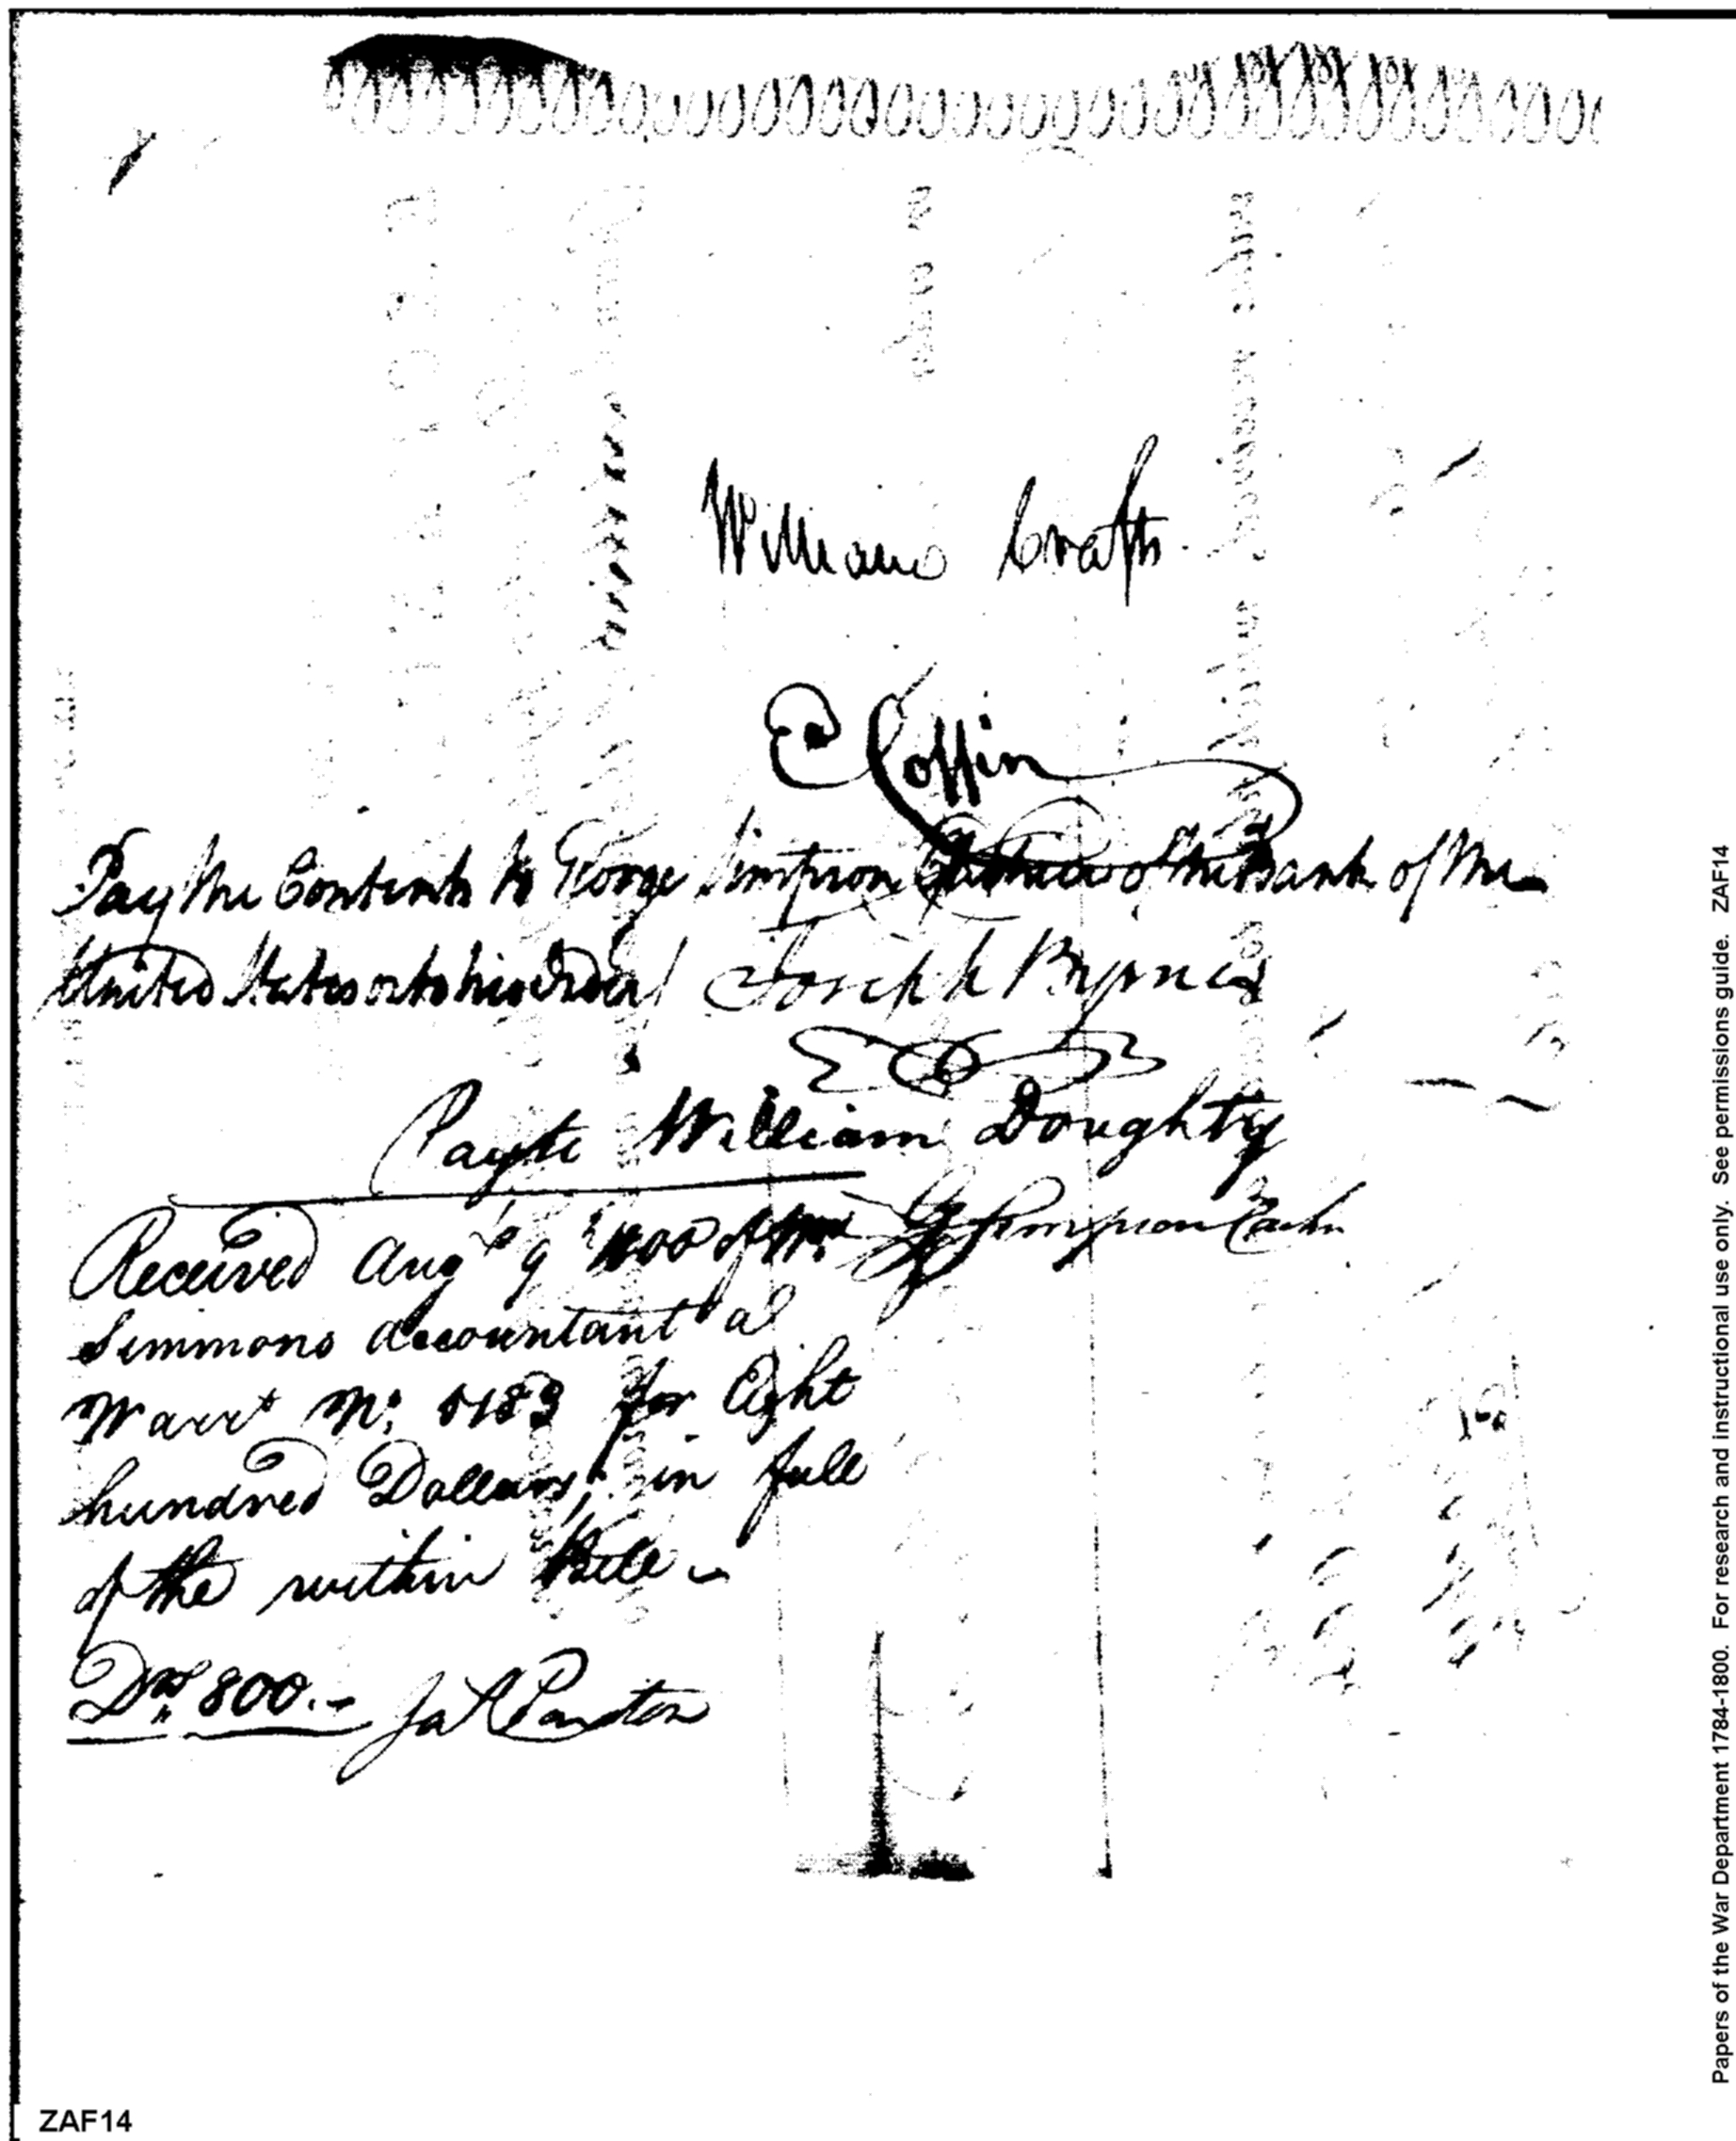 William Crafts
E Coffin
Pay the Contents to George Simpson Cashier of the Bank of the
United States or to his Order Joseph Byrnes
Pay to William Doughty
G Simpson Cash
Received Aug 9 1800 of Mr
Simmons accountant a
Warrt No: 5183 for Eight
hundred Dollars, in full
of the within Bill
Drs 800.- Ja A Paxton
Papers of the War Department 1784-1800. For research and instructional use only. See permissions guide. ZAF14
ZAF14